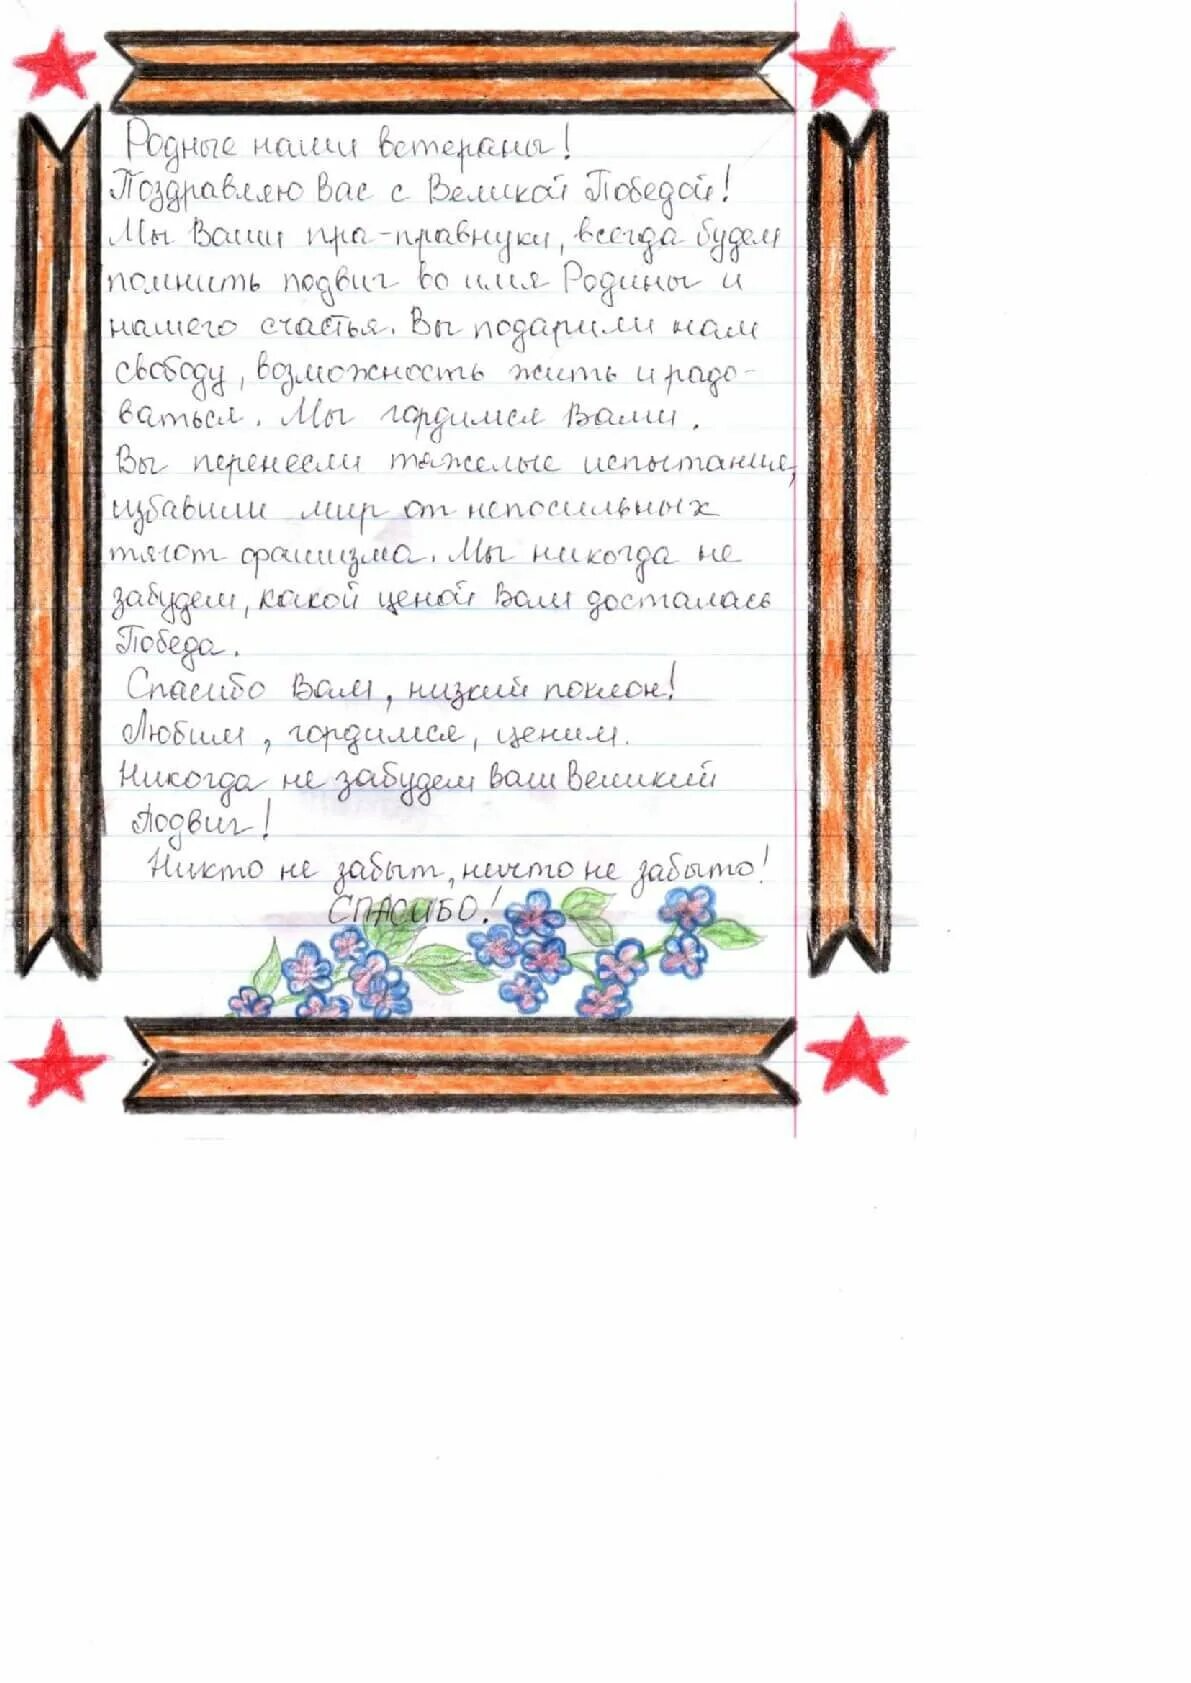 Родные наши ветераны!
Поздравляю Вас с Великой Победой!
Мы Ваши пра-правнуки, всегда будем
помнить подвиг во имя Родины и
нашего счастья. Вы подарили нам
свободу, возможность жить и радо-
ваться. Мы гордимся Вами.
Вы перенесли тяжелые испытания,
избавили мир от непосильных
тягот фашизма. Мы никогда не
забудем, какой ценой Вам досталась
Победа.
Спасибо Вам, низкий поклон!
Любим, гордимся, ценим.
Никогда не забудем ваш Великий
Подвиг!
Никто не забыт, ничто не забыто!
СПАСИБО!